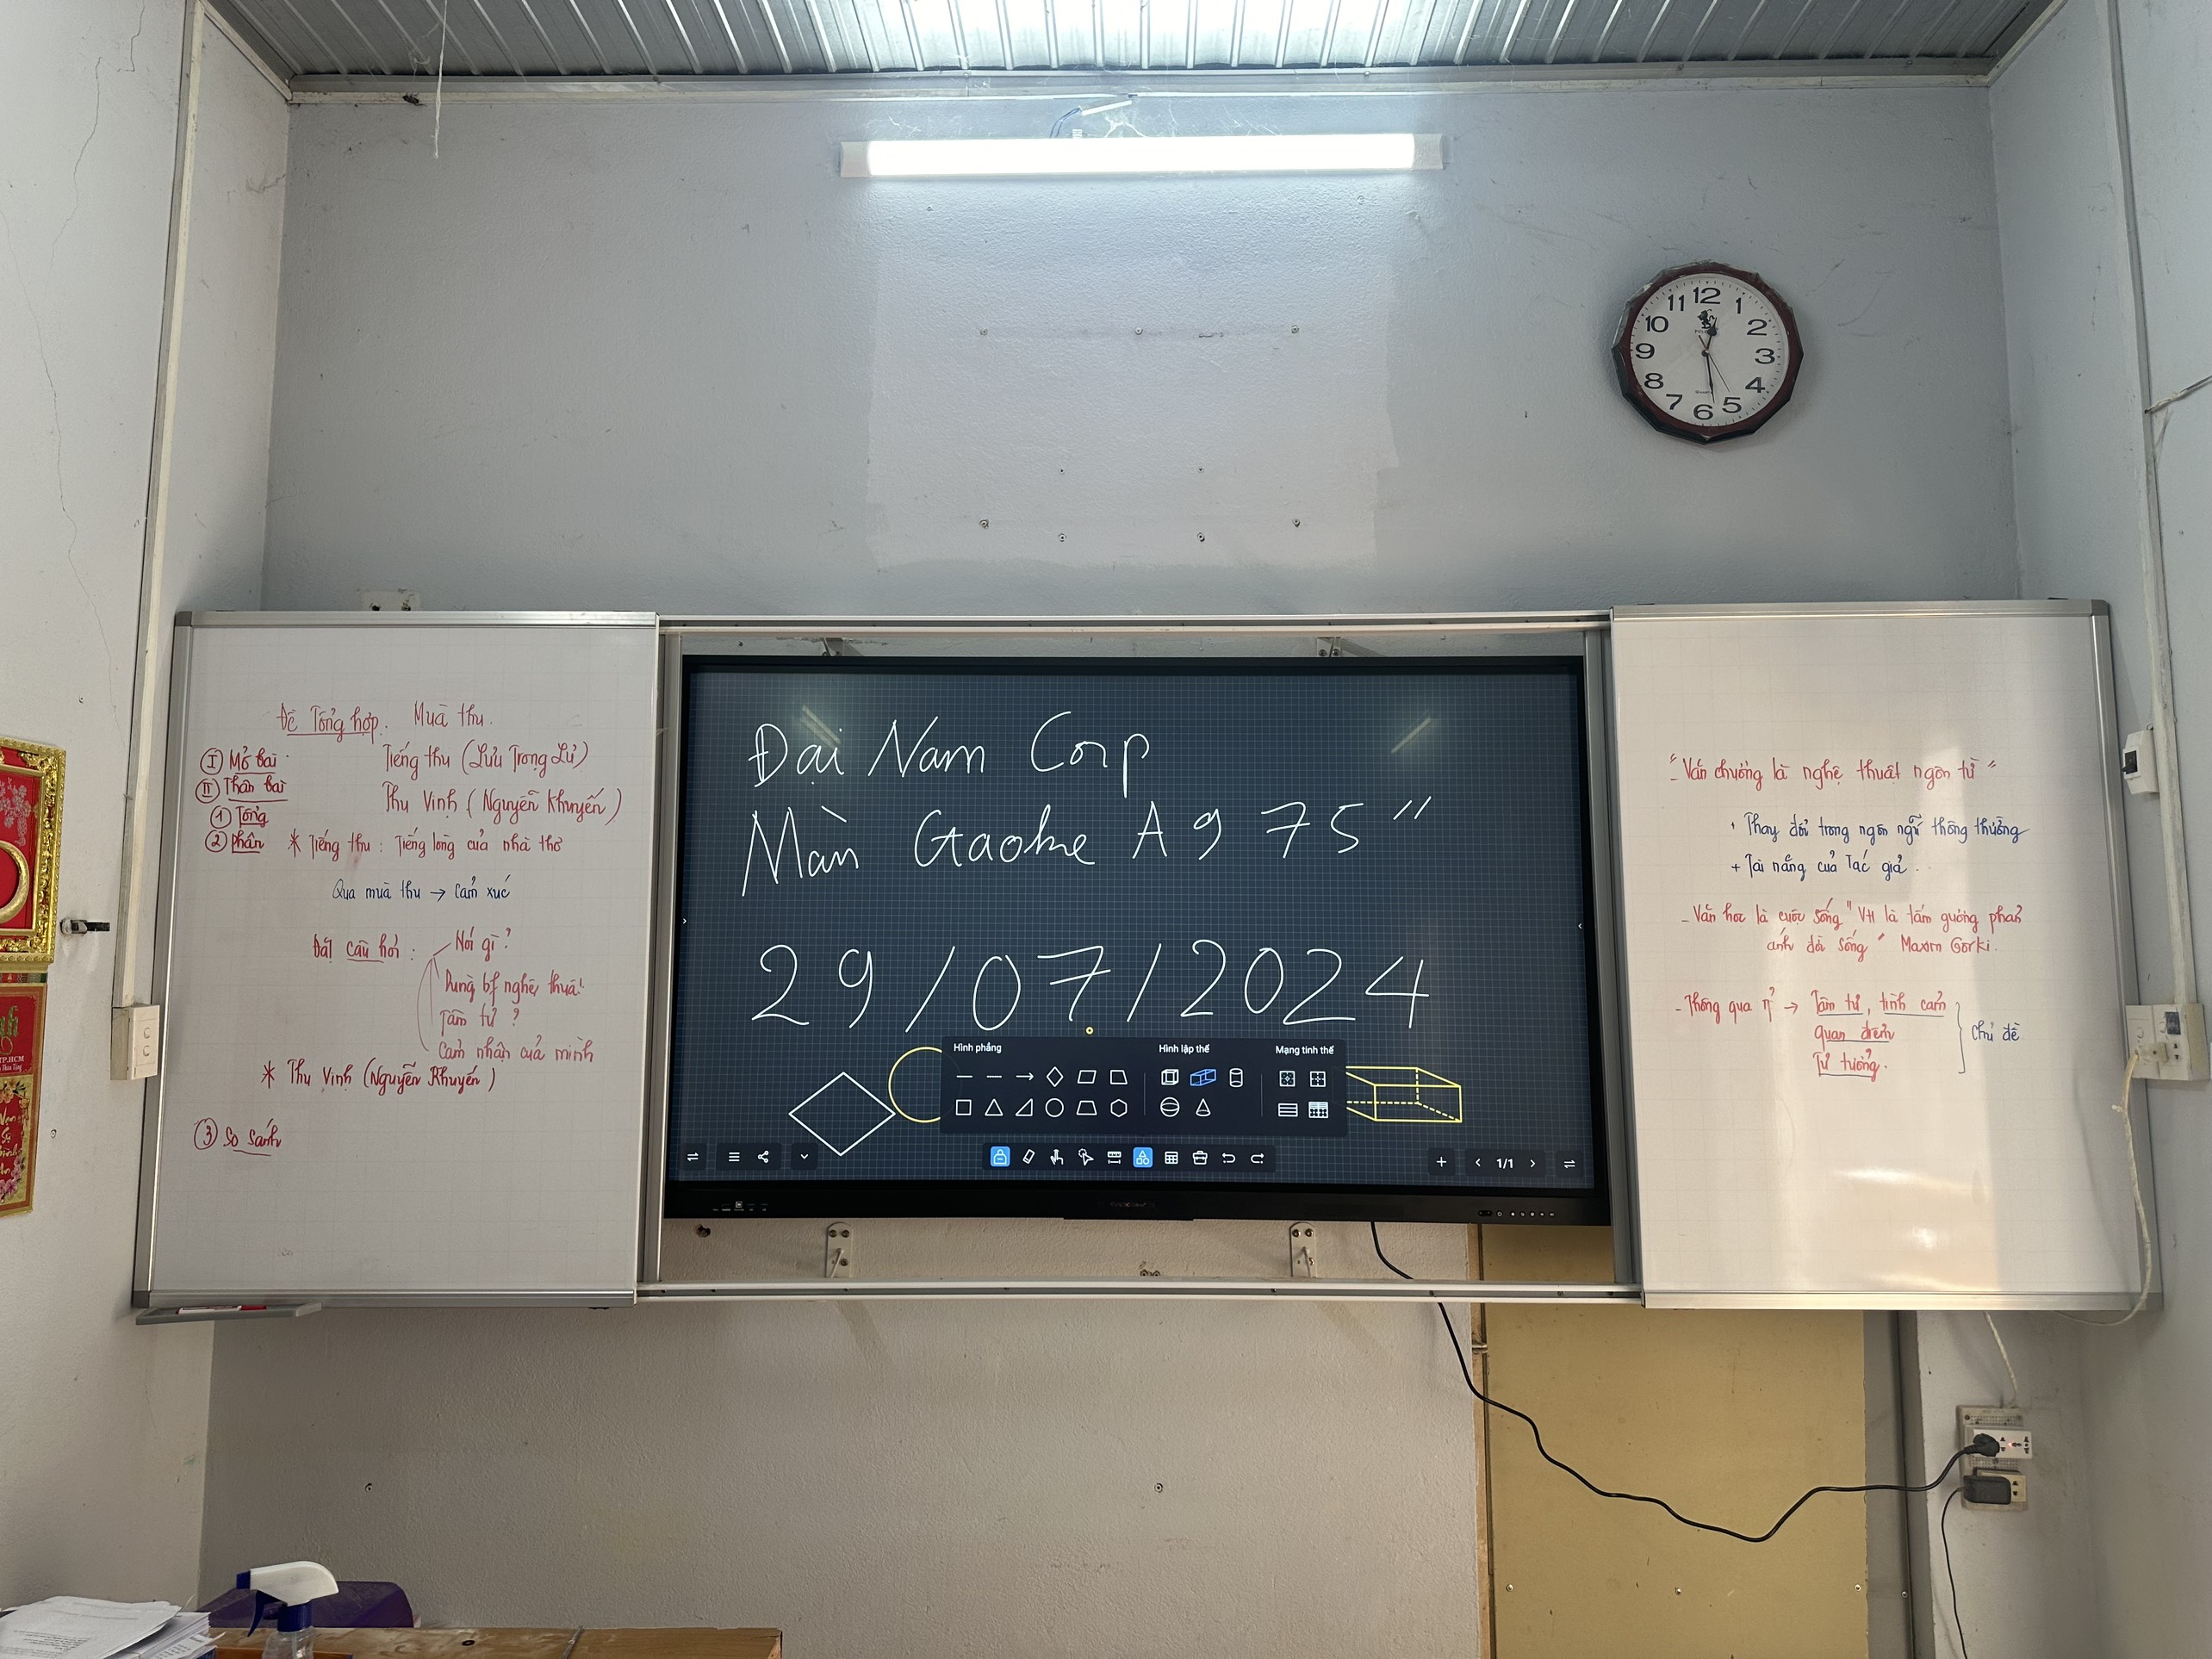 Đề Tổng hợp. Mùa thu.
I Mở bài. Tiếng thu (Lưu Trọng Lư)
II Thân bài
Thu Vịnh (Nguyễn Khuyến)
1 Tổng
2 phân * Tiếng thu : Tiếng lòng của nhà thơ
Qua mùa thu → Cảm xúc
Đặt câu hỏi : Nói gì ?
Dùng bf nghệ thuật
Tâm tư ?
Cảm nhận của mình
* Thu Vịnh (Nguyễn Khuyến)
3 So sánh
Đại Nam Corp
Màn Gaoke A9 75"
29/07/2024
Hình phẳng Hình lập thể Mạng tinh thể
1/1
"Văn chương là nghệ thuật ngôn từ"
+ Thay đổi trong ngôn ngữ thông thường
+ Tài năng của Tác giả.
- Văn học là cuộc sống "VH là tấm gương phản
ánh đời sống" Maxim Gorki.
- Thông qua → Tâm tư, tình cảm
quan điểm
Tư tưởng.
Chủ đề
11 12 1
10 2
9 3
8 4
7 6 5
TP.HCM